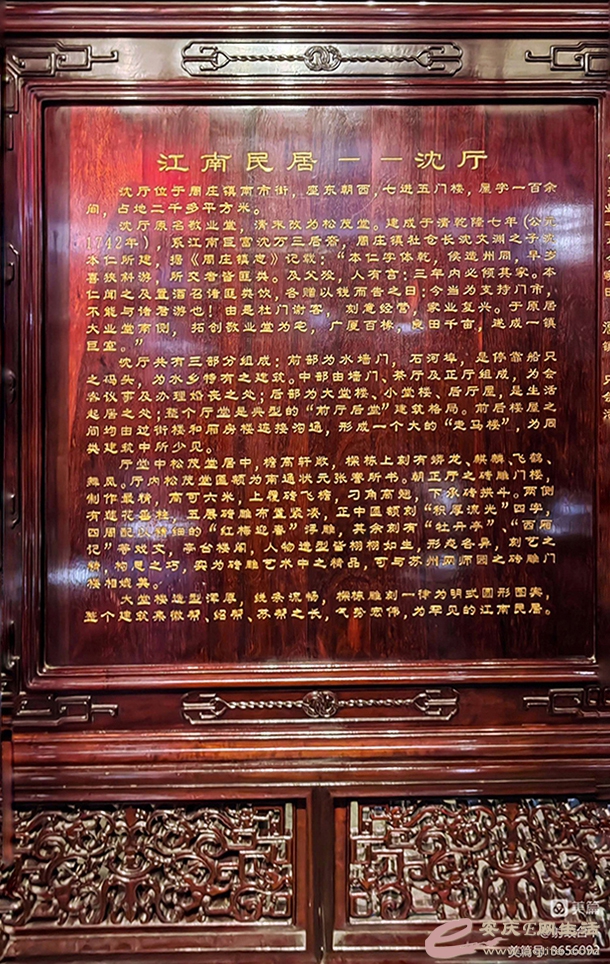 江南民居——沈厅
沈厅位于周庄镇南市街，座东朝西，七进五门楼，屋宇一百余
间，占地二千多平方米。
沈厅原名敬业堂，清末改为松茂堂。建成于清乾隆七年（公元
1742年），系江南巨富沈万三后裔，周庄镇社仓长沈文渊之子沈
本仁所建。据《周庄镇志》记载：“本仁字体乾，候选州同，早岁
喜狭斜游，所交者皆匪类。及父殁，人有言：三年内必倾其家。本
仁闻之及置酒召诸匪类饮，各赠以钱而告之曰：今当为支持门市，
不能与诸君游也！由是杜门谢客，刻意经营，家业复兴。于原居
大业堂南侧，拓创敬业堂为宅，广厦百椽，良田千亩，遂成一镇
巨室。”
沈厅共有三部分组成：前部为水墙门，石河埠，是停靠船只
之码头，为水乡特有之建筑。中部由墙门、茶厅及正厅组成，为会
客议事及办理婚丧之处；后部为大堂楼、小堂楼、后厅屋，是生活
起居之处；整个厅堂是典型的“前厅后堂”建筑格局。前后楼屋之
间均由过街楼和厢房楼连接沟通，形成一个大的“走马楼”，为同
类建筑中所少见。
厅堂中松茂堂居中，檐高轩敞，樑栋上刻有蟒龙、麒麟、飞鹤、
舞凤。厅内松茂堂匾额为南通状元张謇所书。朝正厅之砖雕门楼，
制作最精，高可六米，上覆砖飞檐，刁角高翘，下承砖拱斗。两侧
有莲花垂柱，五层砖雕布置紧凑，正中匾额刻“积厚流光”四字，
四周配以精细的“红梅迎春”浮雕，其余刻有“牡丹亭”、“西厢
记”等戏文，亭台楼阁，人物造型皆栩栩如生，形态各异，刻艺之
精，构思之巧，实为砖雕艺术中之精品，可与苏州网师园之砖雕门
楼相媲美。
大堂楼造型浑厚，线条流畅，樑栋雕刻一律为明式圆形图案，
整个建筑集徽帮、绍帮、苏帮之长，气势宏伟，为罕见的江南民居。
美篇
安庆E网生活
美篇号:8656092